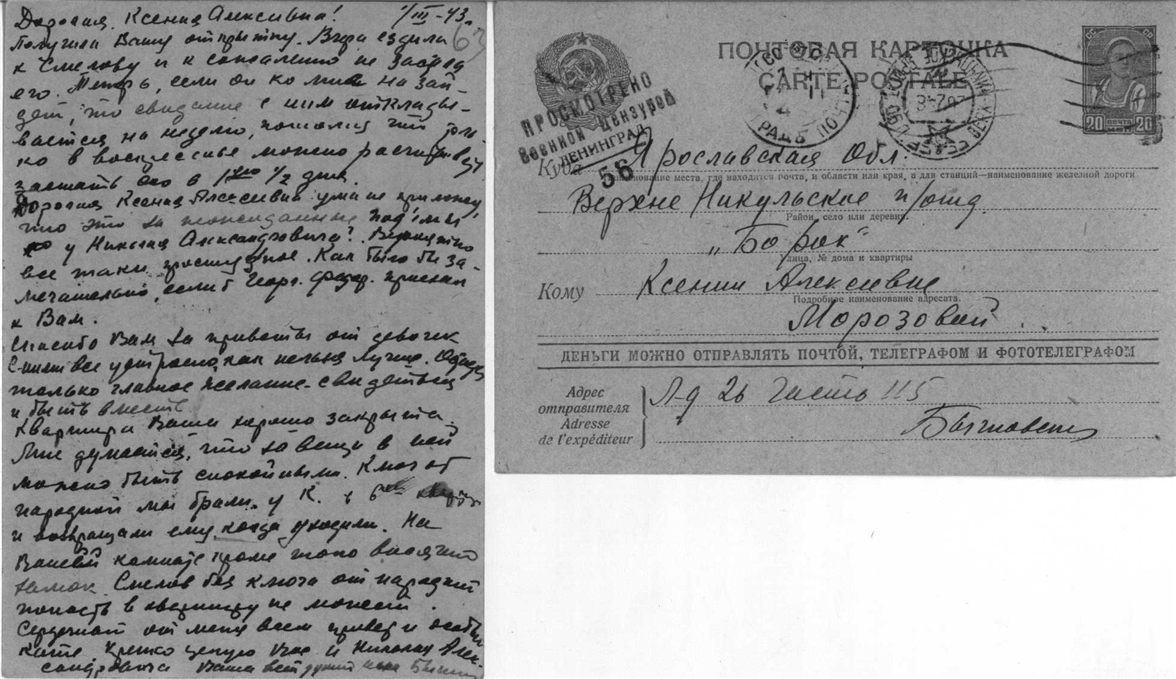 Дорогая Ксения Алексевна! 1/III-43.
63
Получила Вашу открытку. Вчера ездила
к Смелову и к сожалению не застала
его. Теперь, если он ко мне не зай-
дет, то свидание с ним отклады-
вается на неделю, потому что
но в воскресенье можно
застать его в 1/2 дня.
Дорогая Ксения Алексевна ума не приложу
что это за неожиданные
у Николая Александровича? Вероятно
все таки простудное. Как было бы за-
мечательно, если б Георг. Федор. приехал
к Вам.
Спасибо Вам за приветы от девочек
с ними все устроено как нельзя лучше.
только главное желание свидеться
и быть вместе.
Квартира Ваша хорошо закрыта.
Мне думается, что за вещи в ней
можно быть спокойными. Ключ от
парадной мы брали у К. в
и возвращали ему когда уходили. На
Вашей комнате кроме того висячий
замок. Смелов без ключа от парадной
попасть в квартиру не может.
Сердечный от меня всем привет и особый
Кате. Крепко целую Вас и Николая Алек-
сандровича Ваша всей душой
ПОЧТОВАЯ КАРТОЧКА
CARTE POSTALE
ПРОСМОТРЕНО
Военной Цензурой
ЛЕНИНГРАД
56
20 ПОЧТА 20
Куда Ярославская Обл.
Наименование места, где находится почта, и области или края, а для станций—наименование железной дороги
Верхне Никульское п/отд
Район, село или деревня.
„Борок"
Улица, № дома и квартиры
Кому Ксении Алексевне
Подробное наименование адресата.
Морозовой
ДЕНЬГИ МОЖНО ОТПРАВЛЯТЬ ПОЧТОЙ, ТЕЛЕГРАФОМ И ФОТОТЕЛЕГРАФОМ
Адрес
отправителя
Adresse
de l'expéditeur
Л-д 26 Часть 115